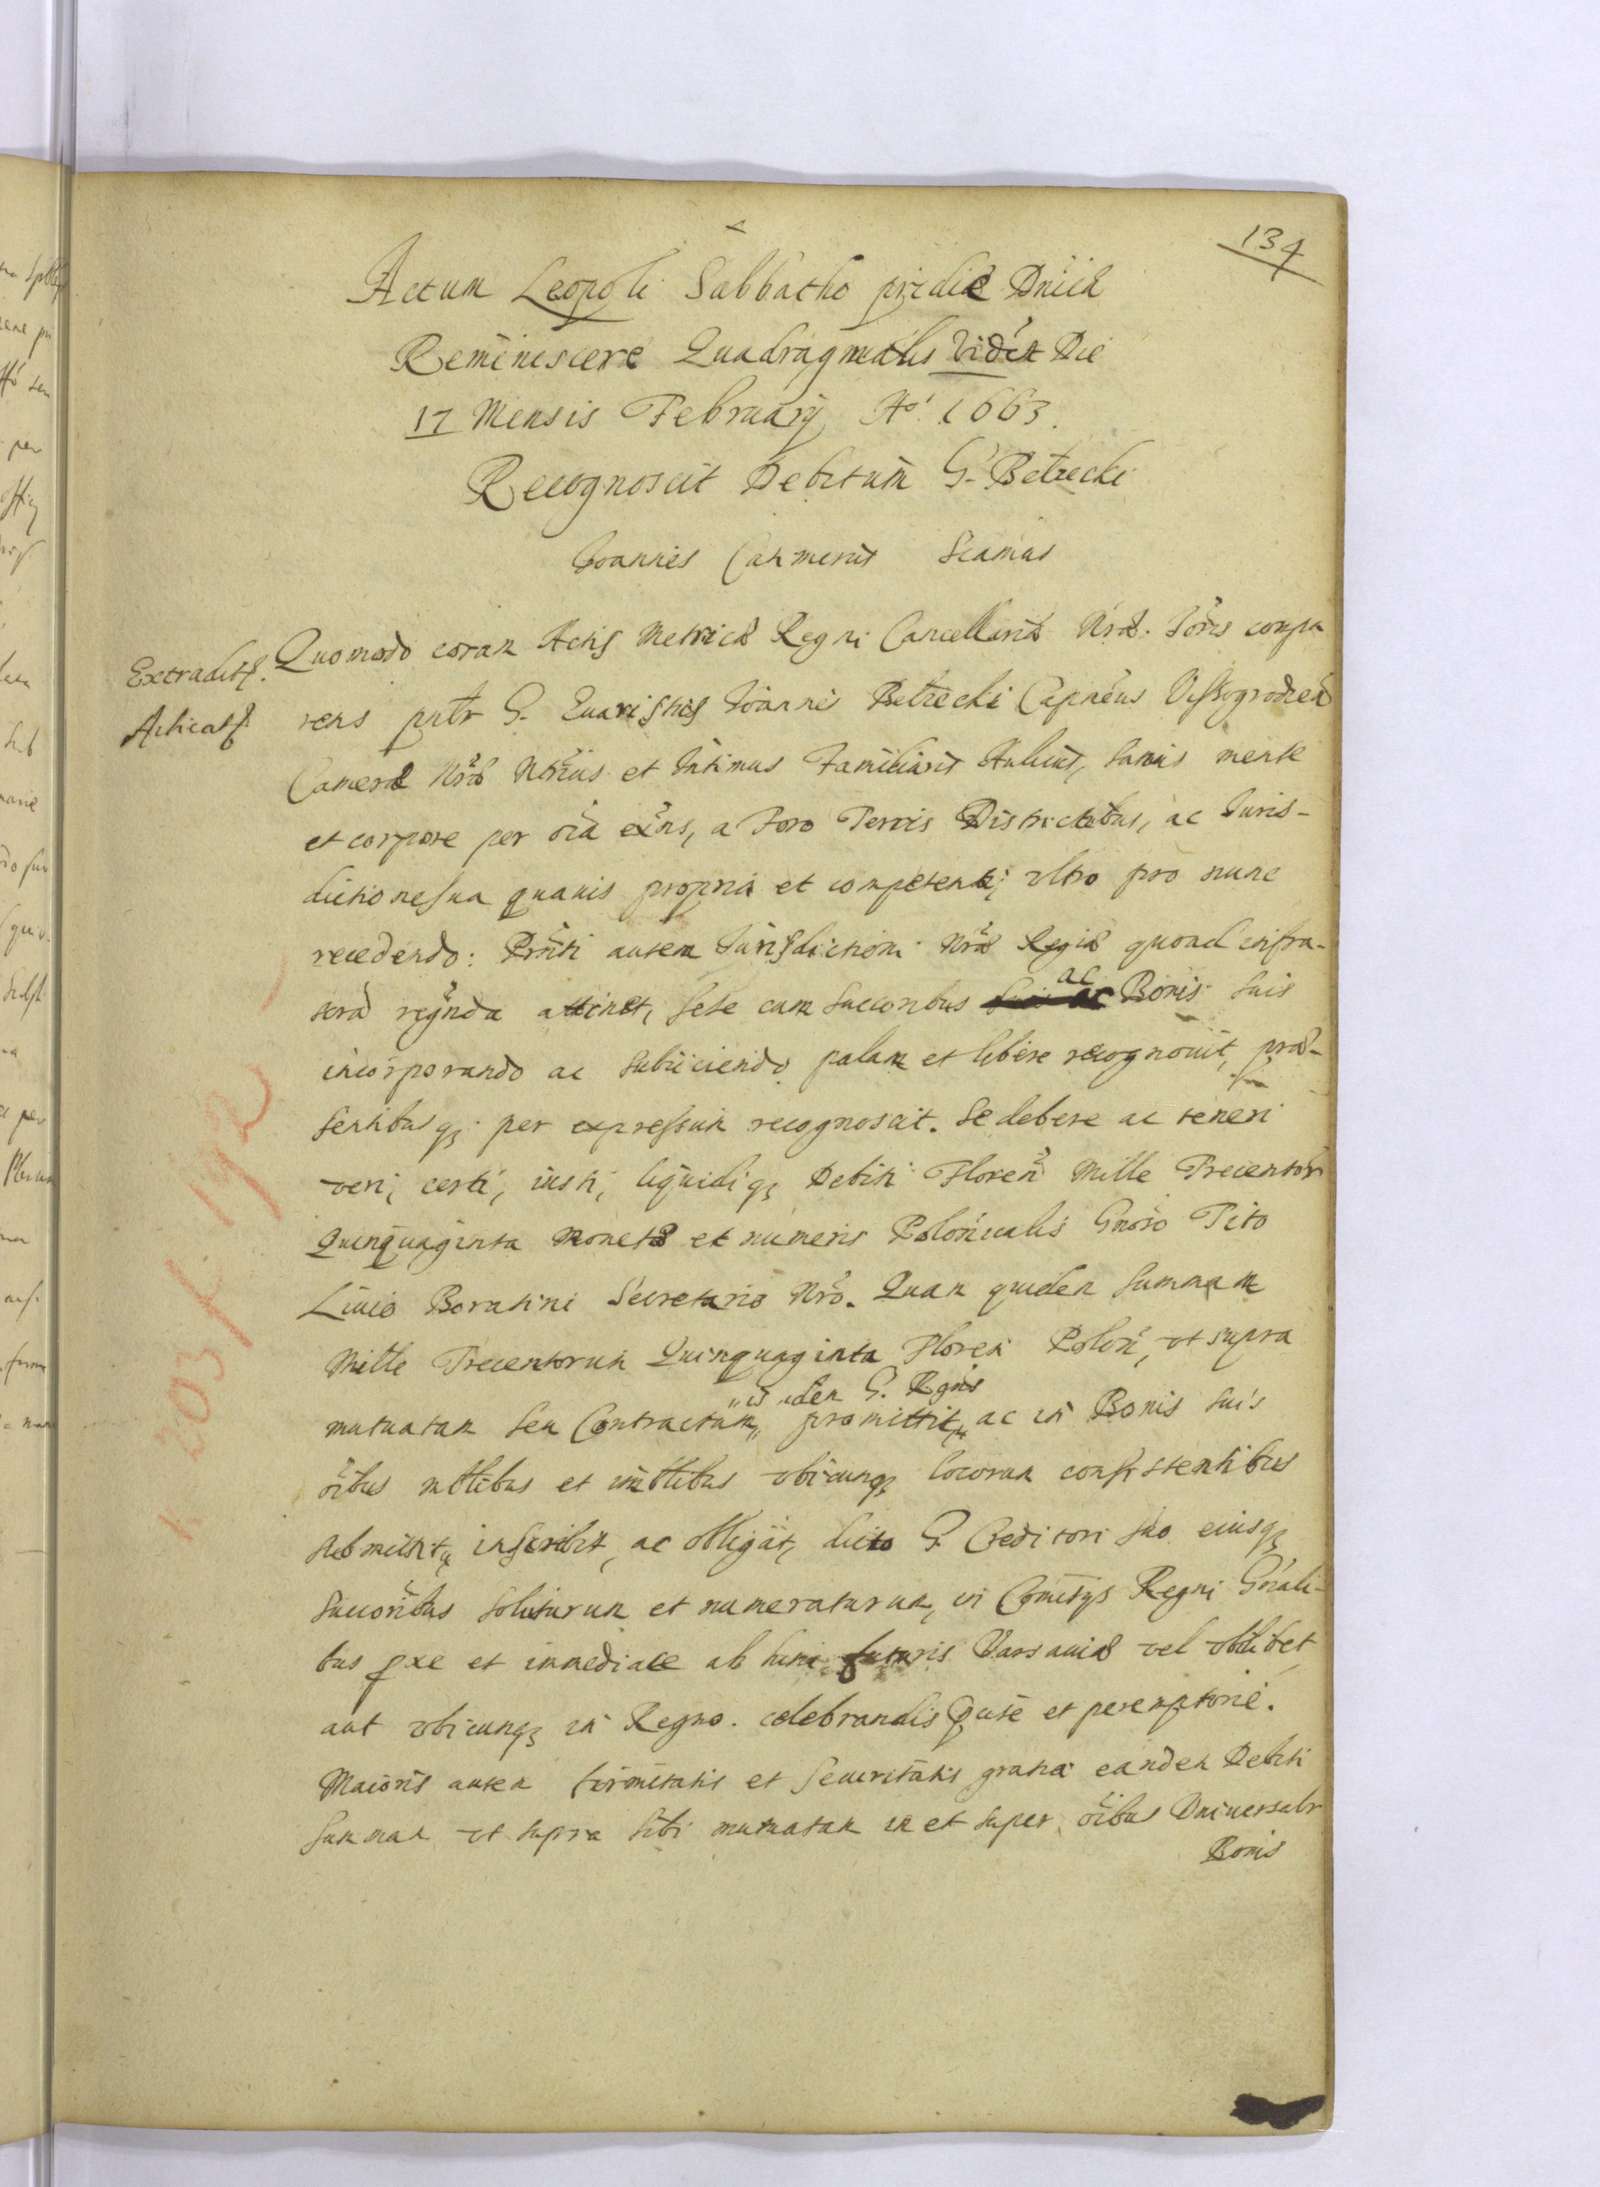 134
Actum Leopoli Sabbatho pridie Dnicæ
Reminiscere Quadragmalis videlt Die
17 Mensis February Ao 1663.
Recognoscit Debitum G. Betrecki
Joannes Casimirus Scamus
Quomodo coram Actis Metricæ Regni Cancellariæ Nræ. compa
Extradit.
rens G. Evaristus Joannes Betzecki Capneus Vissogrodien
Cameræ Nræ et Intimus Familiaris Aulicus, sanus mente
et corpore per oia exns, a Foro Terris Districtibus, ac Juris-
dictione sua quavis propria et competenti ultro pro nunc
recedendo: Prnti autem Jurisdictioni Nræ Regiæ quoad infra-
regnda attinet, sese cum succoribus ac Bonis suis
incorporando ac subiiciendo palam et libere recognovit, præ-
sentibusq; per expressum recognoscit. Se debere ac teneri
veri, certi, iusti, liquidiq; Debiti Floren Mille Trecentor
Quinquaginta monetæ et numeris Polonicalis Gnoso Tito
Livio Boratini Secretario Nro. Quam quidem summam
Mille Trecentorum Quinquaginta Floren Polon, ut supra
idem G. Rgns
mutuatam seu Contractam promittit, ac in Bonis suis
oibus mbilibus et imbilibus ubicunq; locorum consistentibus
inscribit, ac obligat, dicto G. Creditori suo eiusq;
succoribus soluturum et numeraturum, in Comitys Regni Gnali-
bus pxe et immediate ab hinc futuris Varsaviæ vel ubilibet
aut ubicunq; in Regno. celebrandis Pcise et peremptorie.
Maioris autem firmitatis et securitatis gratia eandem Debiti
summam ut supra sibi mutuatam in et super oibus Universalr
Bonis